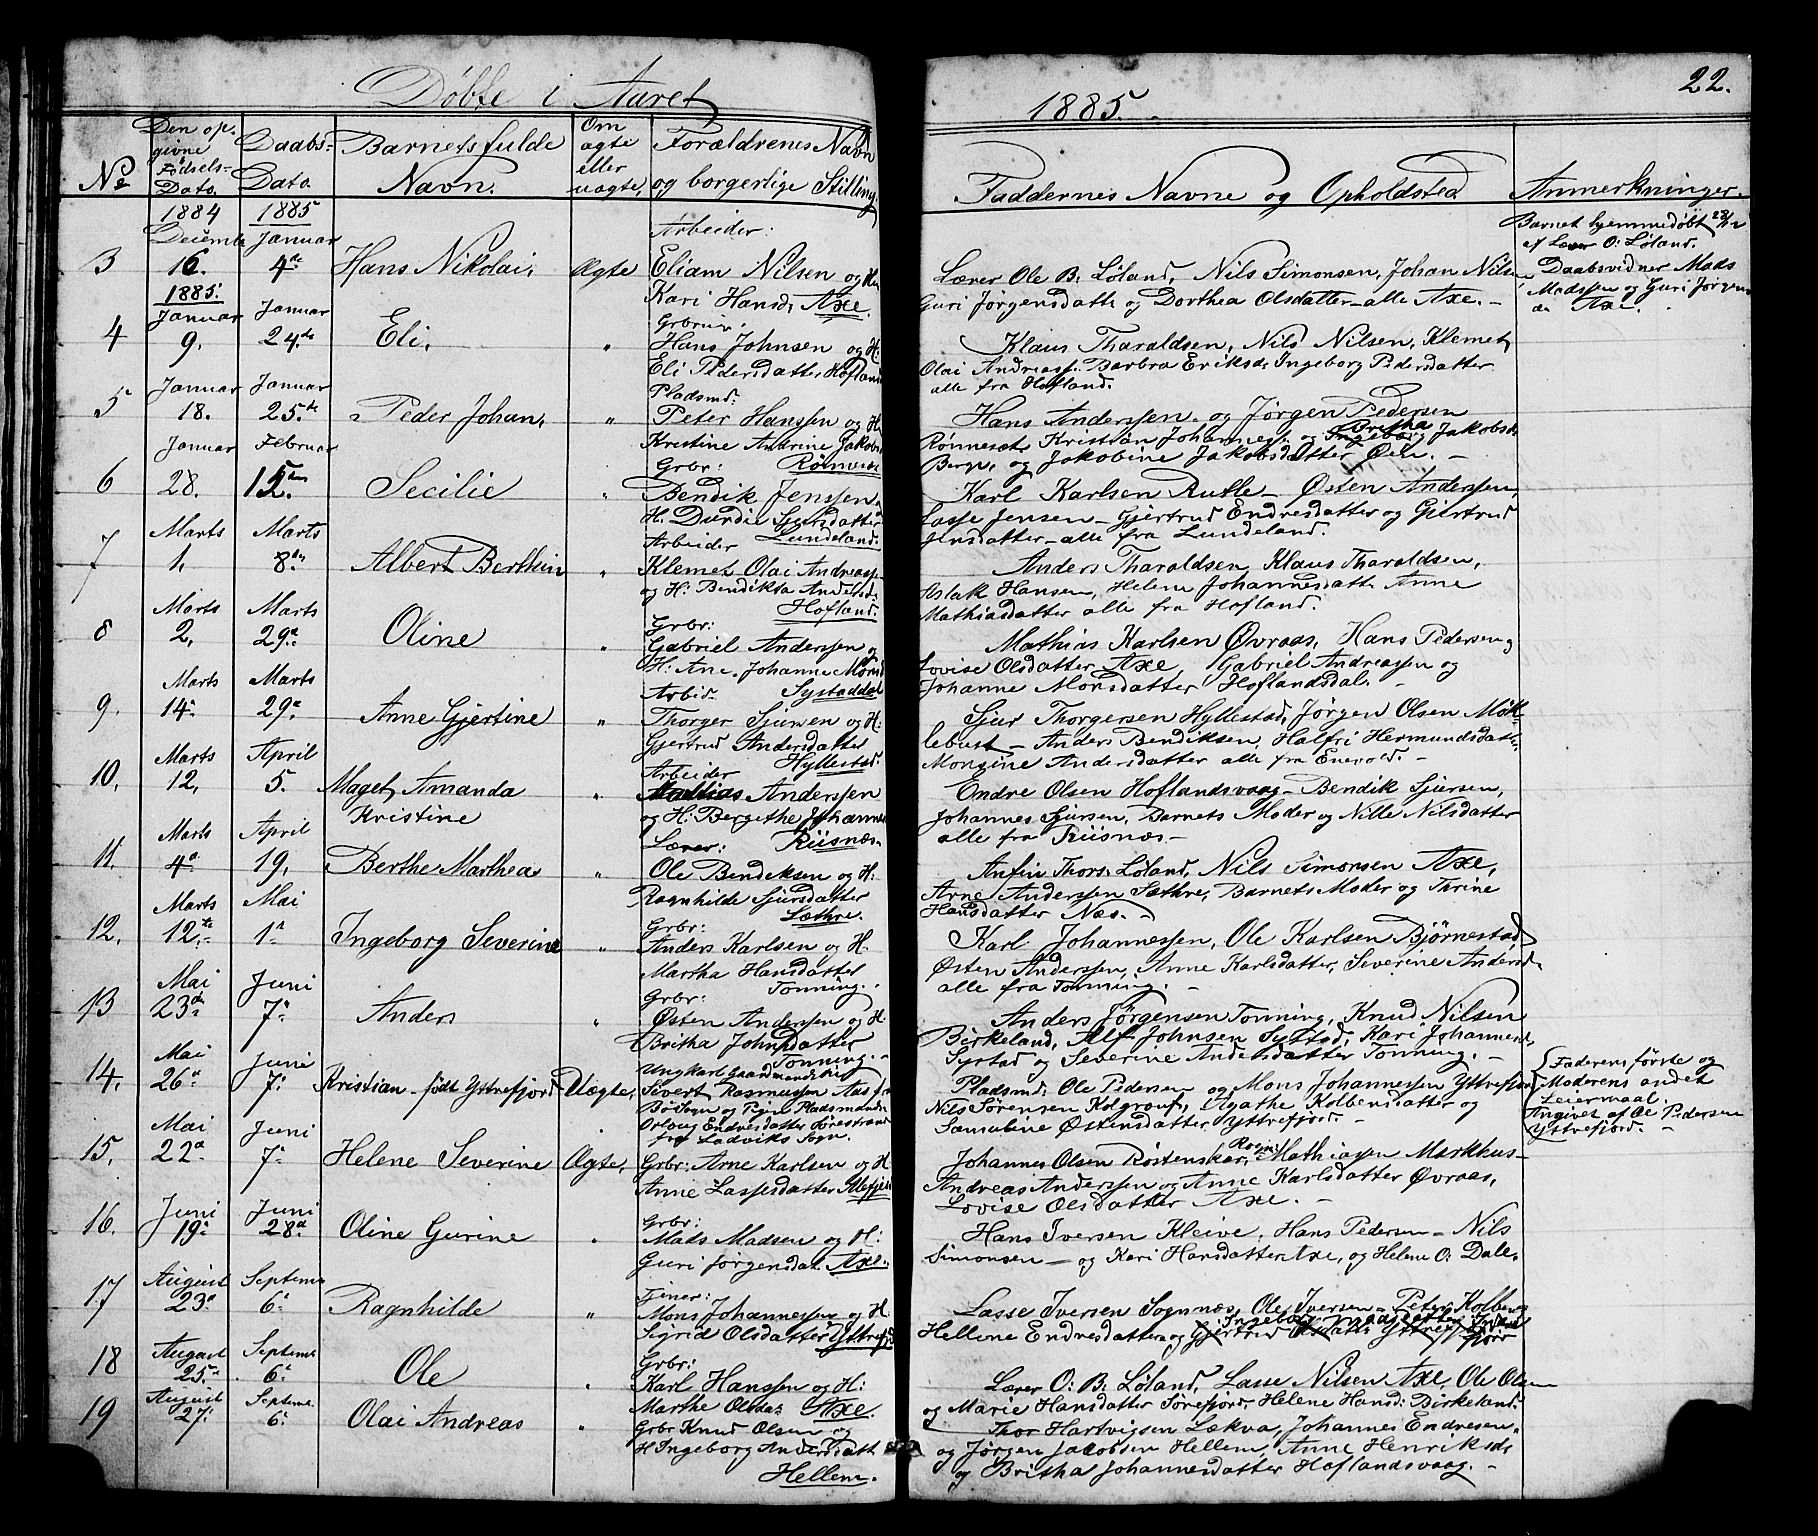 Døbte i Aaret
1885.
22.
Nº
Den op-
givne
Fødsels-
Dato.
Daabs-
Dato.
Barnets fulde
Navn.
Om
ægte
eller
uægte.
Forældrenes Navn
og borgerlige Stilling
Faddernes Navne og Opholdsted
Anmerkninger.
1884
1885
Decembr
Januar
3
16.
4de
Hans Nikolai,
Ægte
Arbeider:
Eliam Nilsen og H.
Kari Hansd. Axe.
Lærer Ole B. Løland, Nils Simonsen, Johan Nilsen
Guri Jørgensdatt. og Dorthea Olsdatter – alle Axe. –
Barnet hjemmedøbt 28/12
af Lærer O: Løland.
Daabsvidner Mads
Madssen og Guri Jørgens
da Axe.
1885:
Januar
Januar
4
9.
24de
Eli.
"
Grbrug:
Hans Johnsen og H.
Eli Pedersdatter Hofland
Klaus Tharaldsen, Nils Nilsen, Klemet
Olai Andreass. Barbra Eriksd. Ingeborg Pedersdatter
alle fra Hofland.
Januar
Januar
5
18.
25de
Peder Johan,
"
Pladsmd:
Peter Hanssen og H.
Kristine Anbrine Jakobsd
Rønneset
Hans Anderssen og Jørgen Pedersen
Rønneset Kristian Johanness. og Britha Jakobsd.
Berge, og Jakobine Jakobsdatter Øen. –
Januar
Februar
6
28.
15.
Secilie
"
Grbr:
Bendik Jenssen
H. Durdei Sjursdatter
Lundeland.
Karl Karlsen Rutle – Østen Anderssen,
Lasse Jensen – Gjertrud Endresdatter og Gjertrud
Jensdatter – alle fra Lundeland.
Marts
Marts
7
1.
8de
Albert Berthin
"
Arbeider
Klemet Olai Andreass
og H: Bendikta Andersd.
Hofland.
Anders Tharaldsen, Klaus Tharaldsen,
Aslak Hansen, Helene Johannesdatt. Anne
Mathiasdatter alle fra Hofland.
Marts
Marts
8
2.
29.
Oline
"
Grbr:
Gabriel Anderssen og
H. Ane Johanne Monsd
Systaddal
Mathias Karlsen Øvraas, Hans Pedersen og
Lovise Olsdatter Axe, Gabriel Andreassen og
Johanne Monsdatter Hoflandsdal. –
Marts
Marts
9.
14.
29.
Anne Gjertine
"
Arbid.
Thorger Sjursen og H:
Gjertrud Andersdatter
Hyllestad.
Sjur Thorgersen Hyllestad, Jørgen Olsen Møk-
lebust – Anders Bendiksen, Halfri Hermundsdatt.
Monsine Andersdatter alle fra Enevold. –
Marts
April
10.
12.
5.
Maget Amanda
Kristine
"
Arbeider
Mathias Anderssen
og H: Bergethe Johannes
Riisnæs.
Endre Olsen Hoflandsvaag – Bendik Sjursen,
Johannes Sjursen, Barnets Moder og Nille Nilsdatter
alle fra Riisnæs –
Marts
April
11.
4.
19.
Berthe Marthea
"
Lærer:
Ole Bendiksen og H:
Ragnhilde Sjursdatter
Sæthre.
Anfin Thors. Løland, Nils Simonsen Axe,
Arne Anderssen Sæthre, Barnets Moder og Thrine
Hansdatter Næs. –
Marts
Mai
12.
12te
1.
Ingeborg Severine
"
Grbr:
Anders Karlsen og H.
Martha Hansdatter
Tonning.
Karl Johannessen, Ole Karlsen Bjørnestad
Østen Anderssen, Anne Karlsdatter, Severine Andersd.
alle fra Tonning. –
Mai
Juni
13
23de
7.
Anders
"
Grbr:
Østen Anderssen og H
Britha Johnsdatter
Tonning. –
Anders Jørgensen Tonning, Knud Nilsen
Birkeland, Alf Johnsen Systad, Kari Johannesd.
Systad og Severine Andersdatter Tonning. –
Mai
Juni
14.
26.
7.
Kristian født Yttrefjord
Uægte,
Ungkarl Gaardmands
Sivert Rasmussen Aas fra
Bø Sogn og Pige Pladsmands
Orloug Endresdatter
fra Ladviks Sogn.
Pladsmd: Ole Pedersen og Mons Johannessen Yttrefjord
Nils Sørensen Kolgrouf, Agathe Kolbensdatter og
Samuline Østensdatter Yttrefjord. –
Faderens første og
Moderens andet
Leiermaal.
Angivet af Ole Pedersen
Yttrefjord. –
Mai
Juni
15.
22.
7.
Helene Severine
Ægte,
Grbr: Arne Karlsen og H
Anne Lassesdatter
Johannes Olsen Røstenskar, Mathiasen Markhus –
Andreas Anderssen og Anne Karlsdatter Øvraas,
Lovise Olsdatter Axe. –
Juni
Juni
16.
19.
28.
Oline Gurine
"
Grbr:
Mads Madsen og H:
Guri Jørgensdat. Axe.
Hans Iversen Kleive, Hans Pedersen – Nils
Simonsen – og Kari Hansdatter Axe, og Helene O: Dale.
August
Septemr
17
23.
6.
Ragnhilde
"
Tjener:
Mons Johannessen og H.
Sigrid Olsdatter Yttrefjd
Lasse Iversen Sognnæs, Ole Iversen – Peter Kolbens
Hellene Endresdatter og Ingeborg
August
Septemr
18
25.
6.
Ole
"
Grbr:
Karl Hanssen og H:
Marthe Olsdat. Axe.
Lærer O: B. Løland, Lasse Nilsen Axe, Ole Olsen
og Marie Hansdatter Sørefjord, Helene Hansd. Birkeland.
August
Septemr
19
27.
6.
Olai Andreas
"
Grbr Knud Olsen og
H Ingeborg Andersdatt.
Hellem.
Thor Hartvigsen Lækva, Johannes Endresen
og Jørgen Jacobsen Hellem, Anne Henriksd.
og Britha Johannesdatter Hoflandsvaag. –